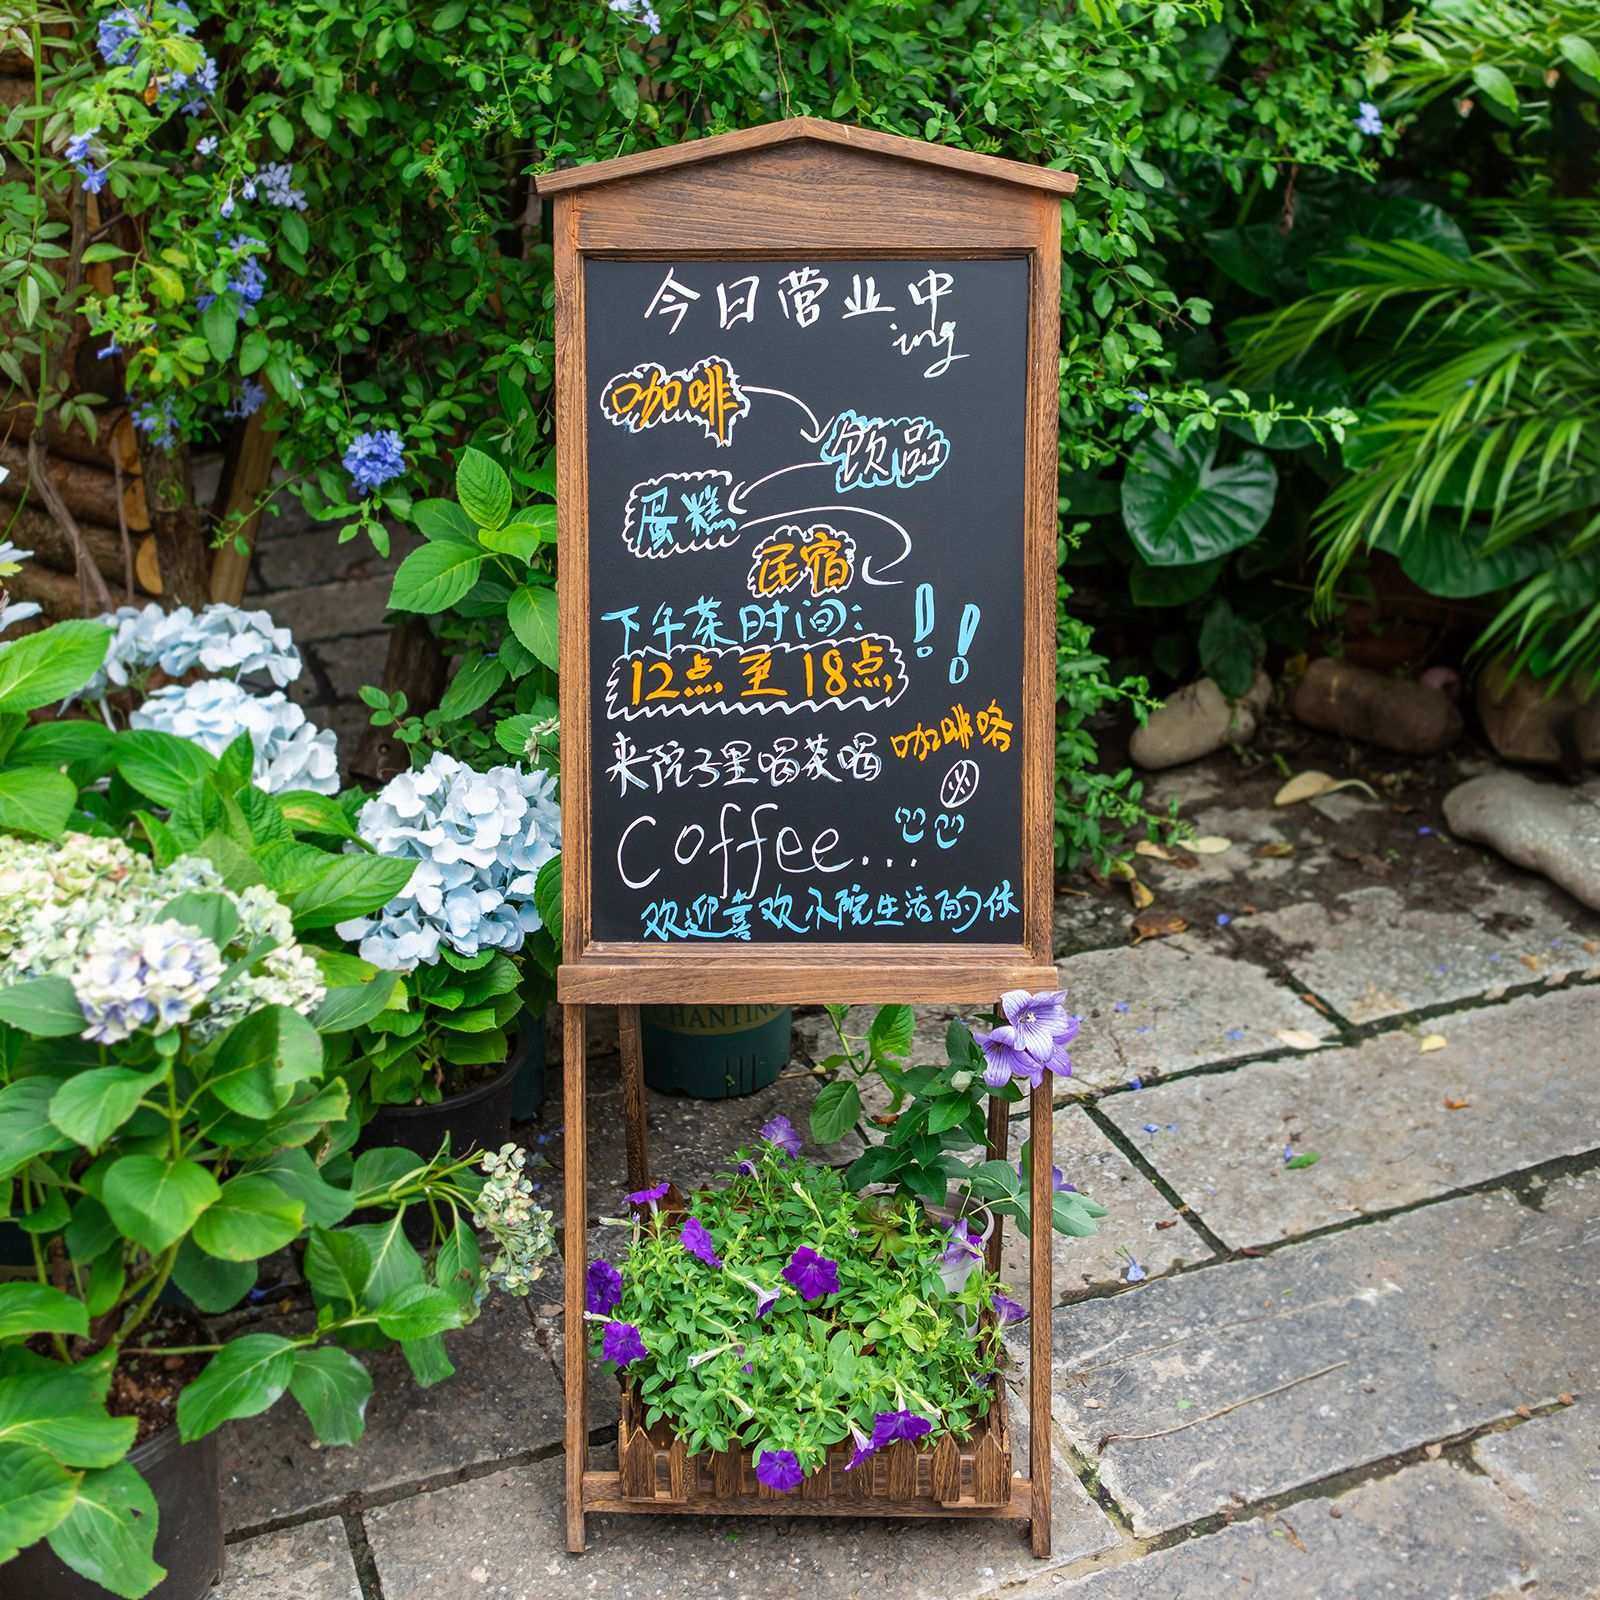 今日营业中
ing
咖啡
饮品
蛋糕
民宿
下午茶时间:!!
12点至18点
来院子里喝茶喝
咖啡咯
Coffee...
欢迎喜欢小院生活的你
CHANTING